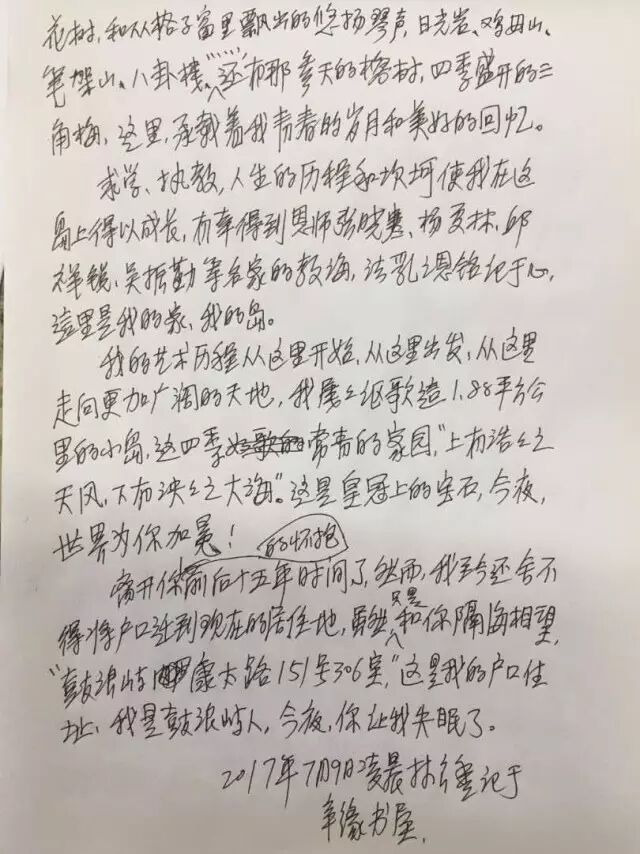 花树，和从格子窗里飘出的悠扬琴声，日光岩、鸡母山、
笔架山、八卦楼……还有那参天的榕树，四季盛开的三
角梅，这里，承载着我青春的岁月和美好的回忆。
求学、执教，人生的历程和坎坷使我在这
岛上得以成长，有幸得到恩师张晓寒、杨夏林、邱
祥锐、吴振勤等名家的教诲，法乳恩铭记于心，
这里是我的家，我的岛。
我的艺术历程从这里开始，从这里出发，从这里
走向更加广阔的天地，我屡屡讴歌这1.88平方公
里的小岛，这四季常青的家园，“上有浩浩之
天风，下有泱泱之大海”。这是皇冠上的宝石，今夜，
世界为你加冕！
离开你的怀抱前后十五年时间了，然而，我至今还舍不
得将户口迁到现在的居住地，虽然只是和你隔海相望，
“鼓浪屿康太路151号306室，”这是我的户口住
址、我是鼓浪屿人，今夜，你让我失眠了。
2017年7月9日凌晨林记于
书屋.